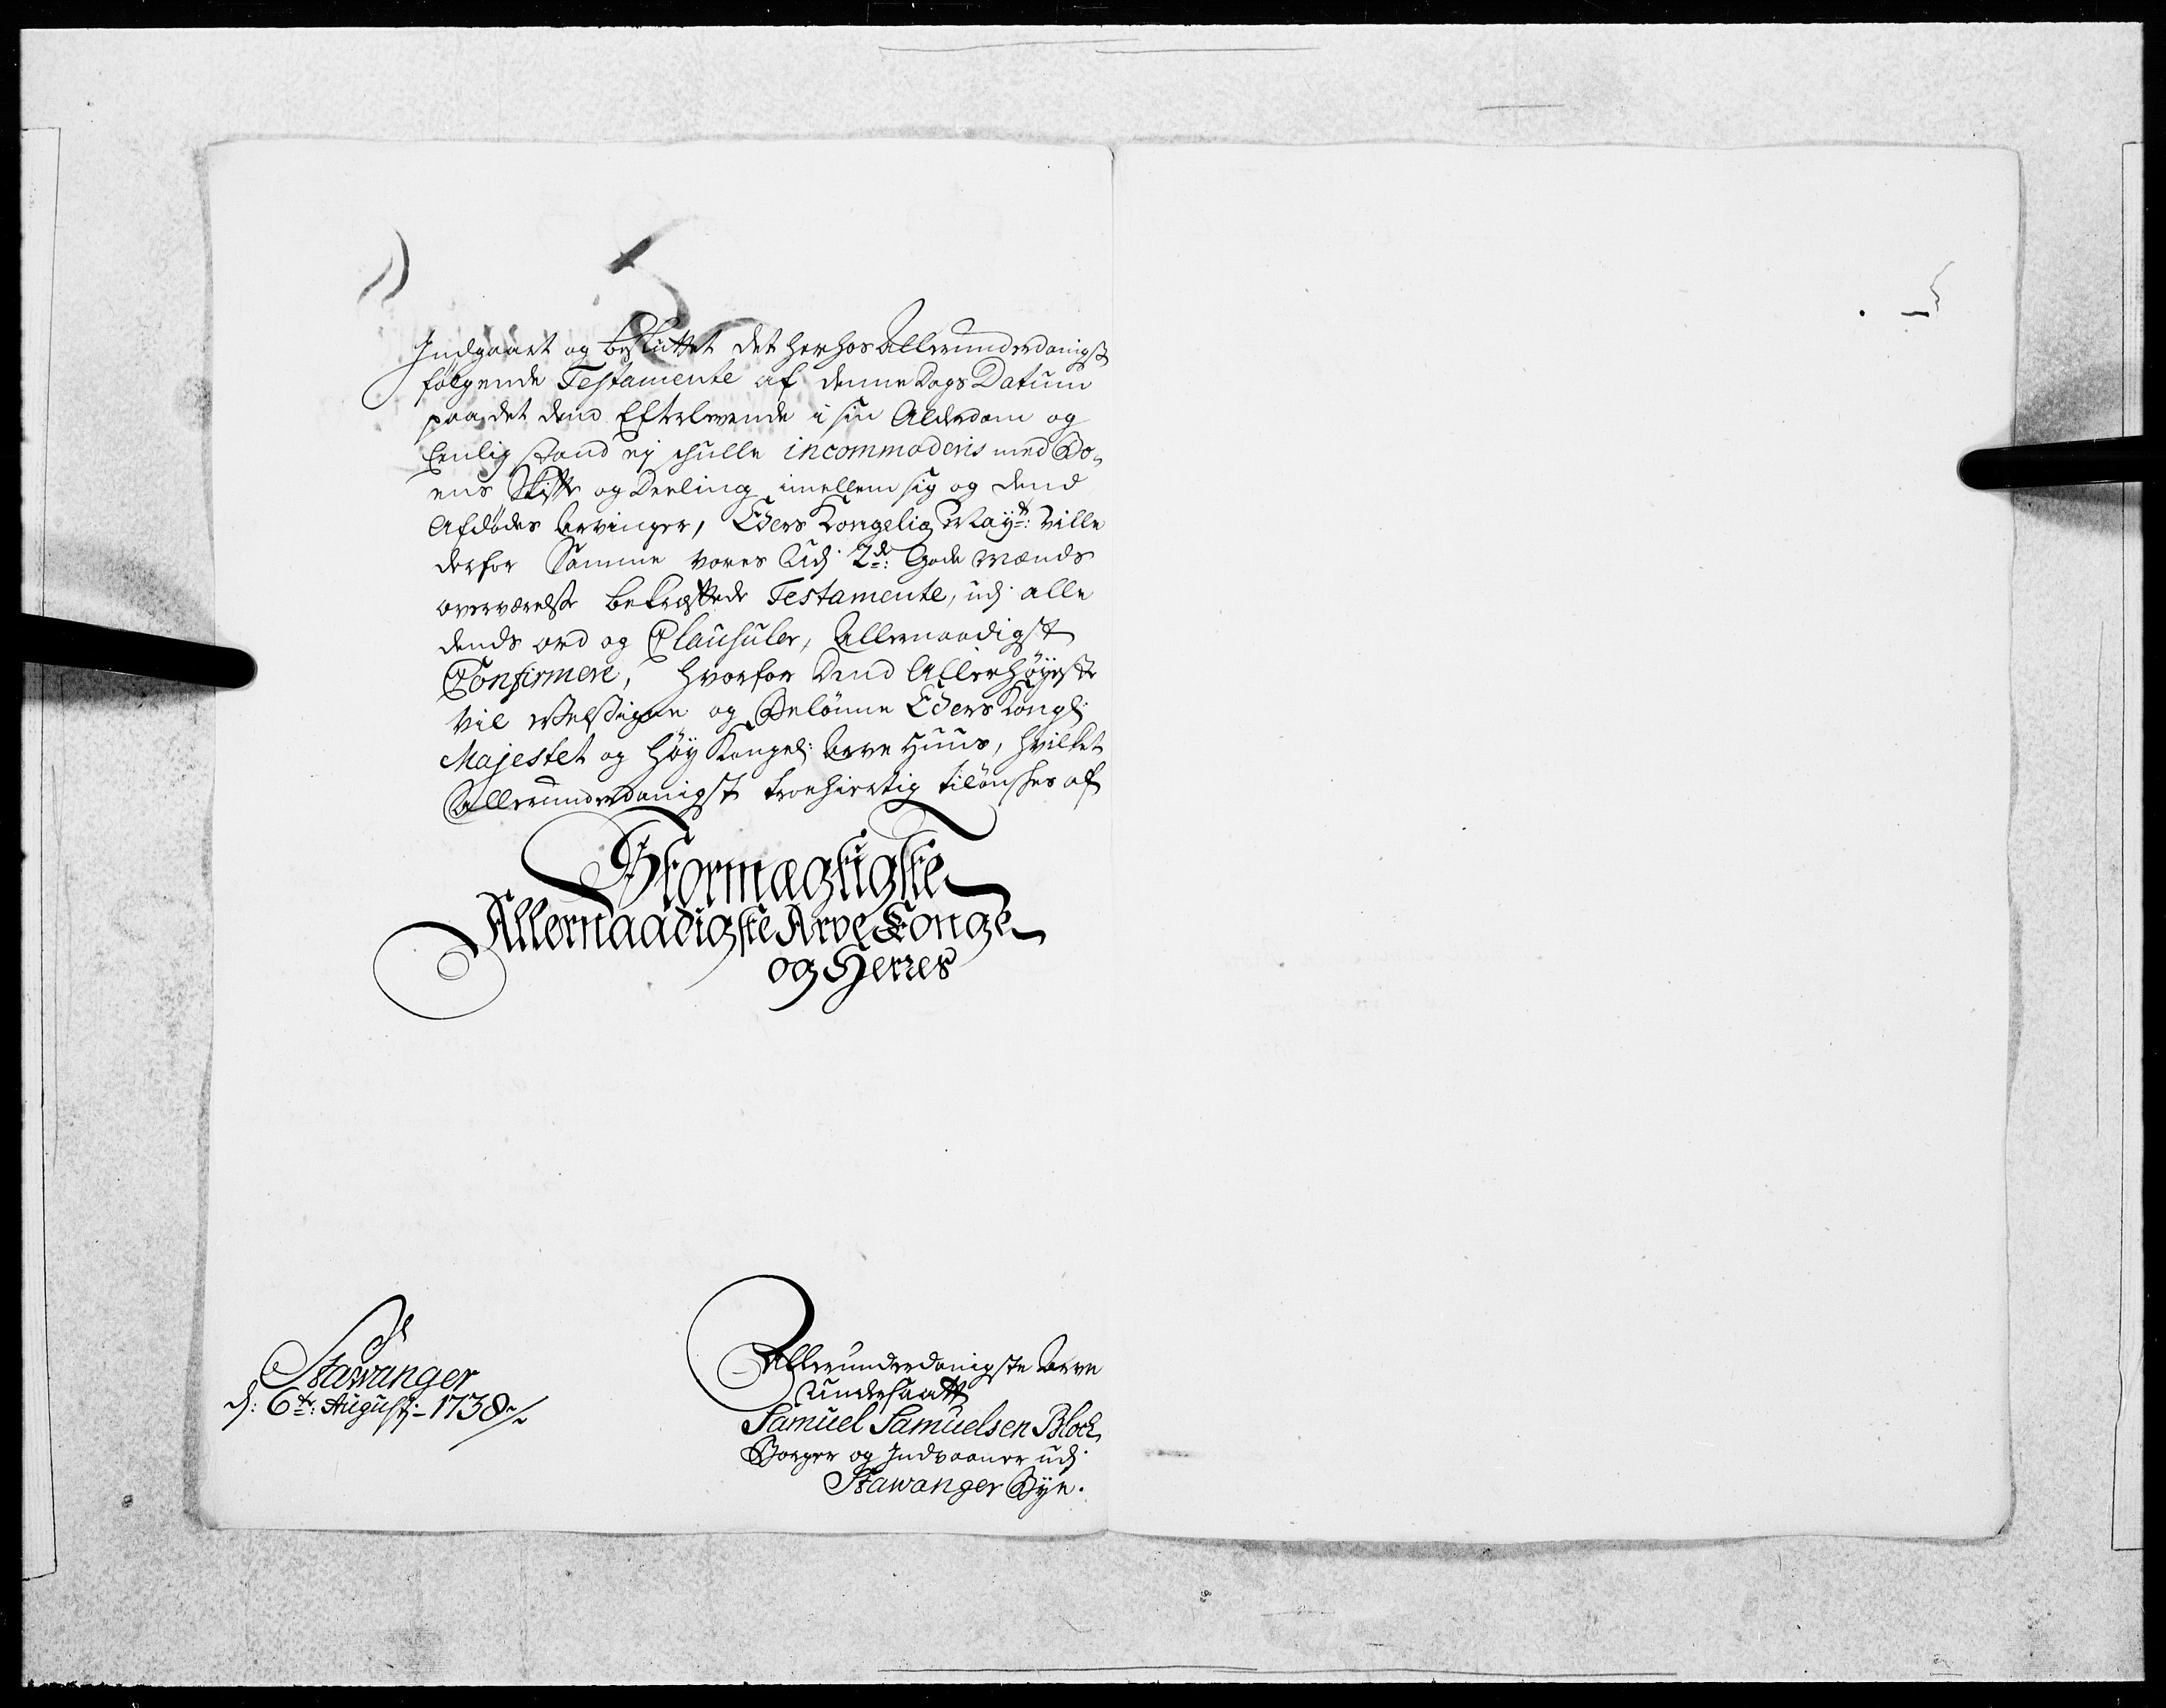 Indgaaet og besluttet det herhos Allerunderdanigst
følgende Testamente af denne Dags Datum
paa det dend Efterlevende i sin Alderdom og
Eenlig stand ej skulle incommoderis med Bo-
ens Skifte og Deeling imellem sig og dend
Afdødes Arvinger, Eders Kongelig Mayts: Ville
derfor Samme vores Udj 2de: Gode Mænds
overværelse bekræftede Testamente, udj alle
dends ord og Clausuler, Allernaadigst
Confirmere, hvorfor dend Allerhøyeste
vil Velsigne og Belønne Eders Kongl:
Majestet og høy Kongel: Arve Huus, hvilket
Allerunderdanigst troehiertig tilønskes af
Stormægtigste
Allernaadigste Arve Konge
og Herres
Stawanger
d: 6te: Augustj 1738
Allerunderdanigste Arve
Undersaatt
Samuel Samuelsen Block
Borger og Indvaaner udj
Stawanger Bye.